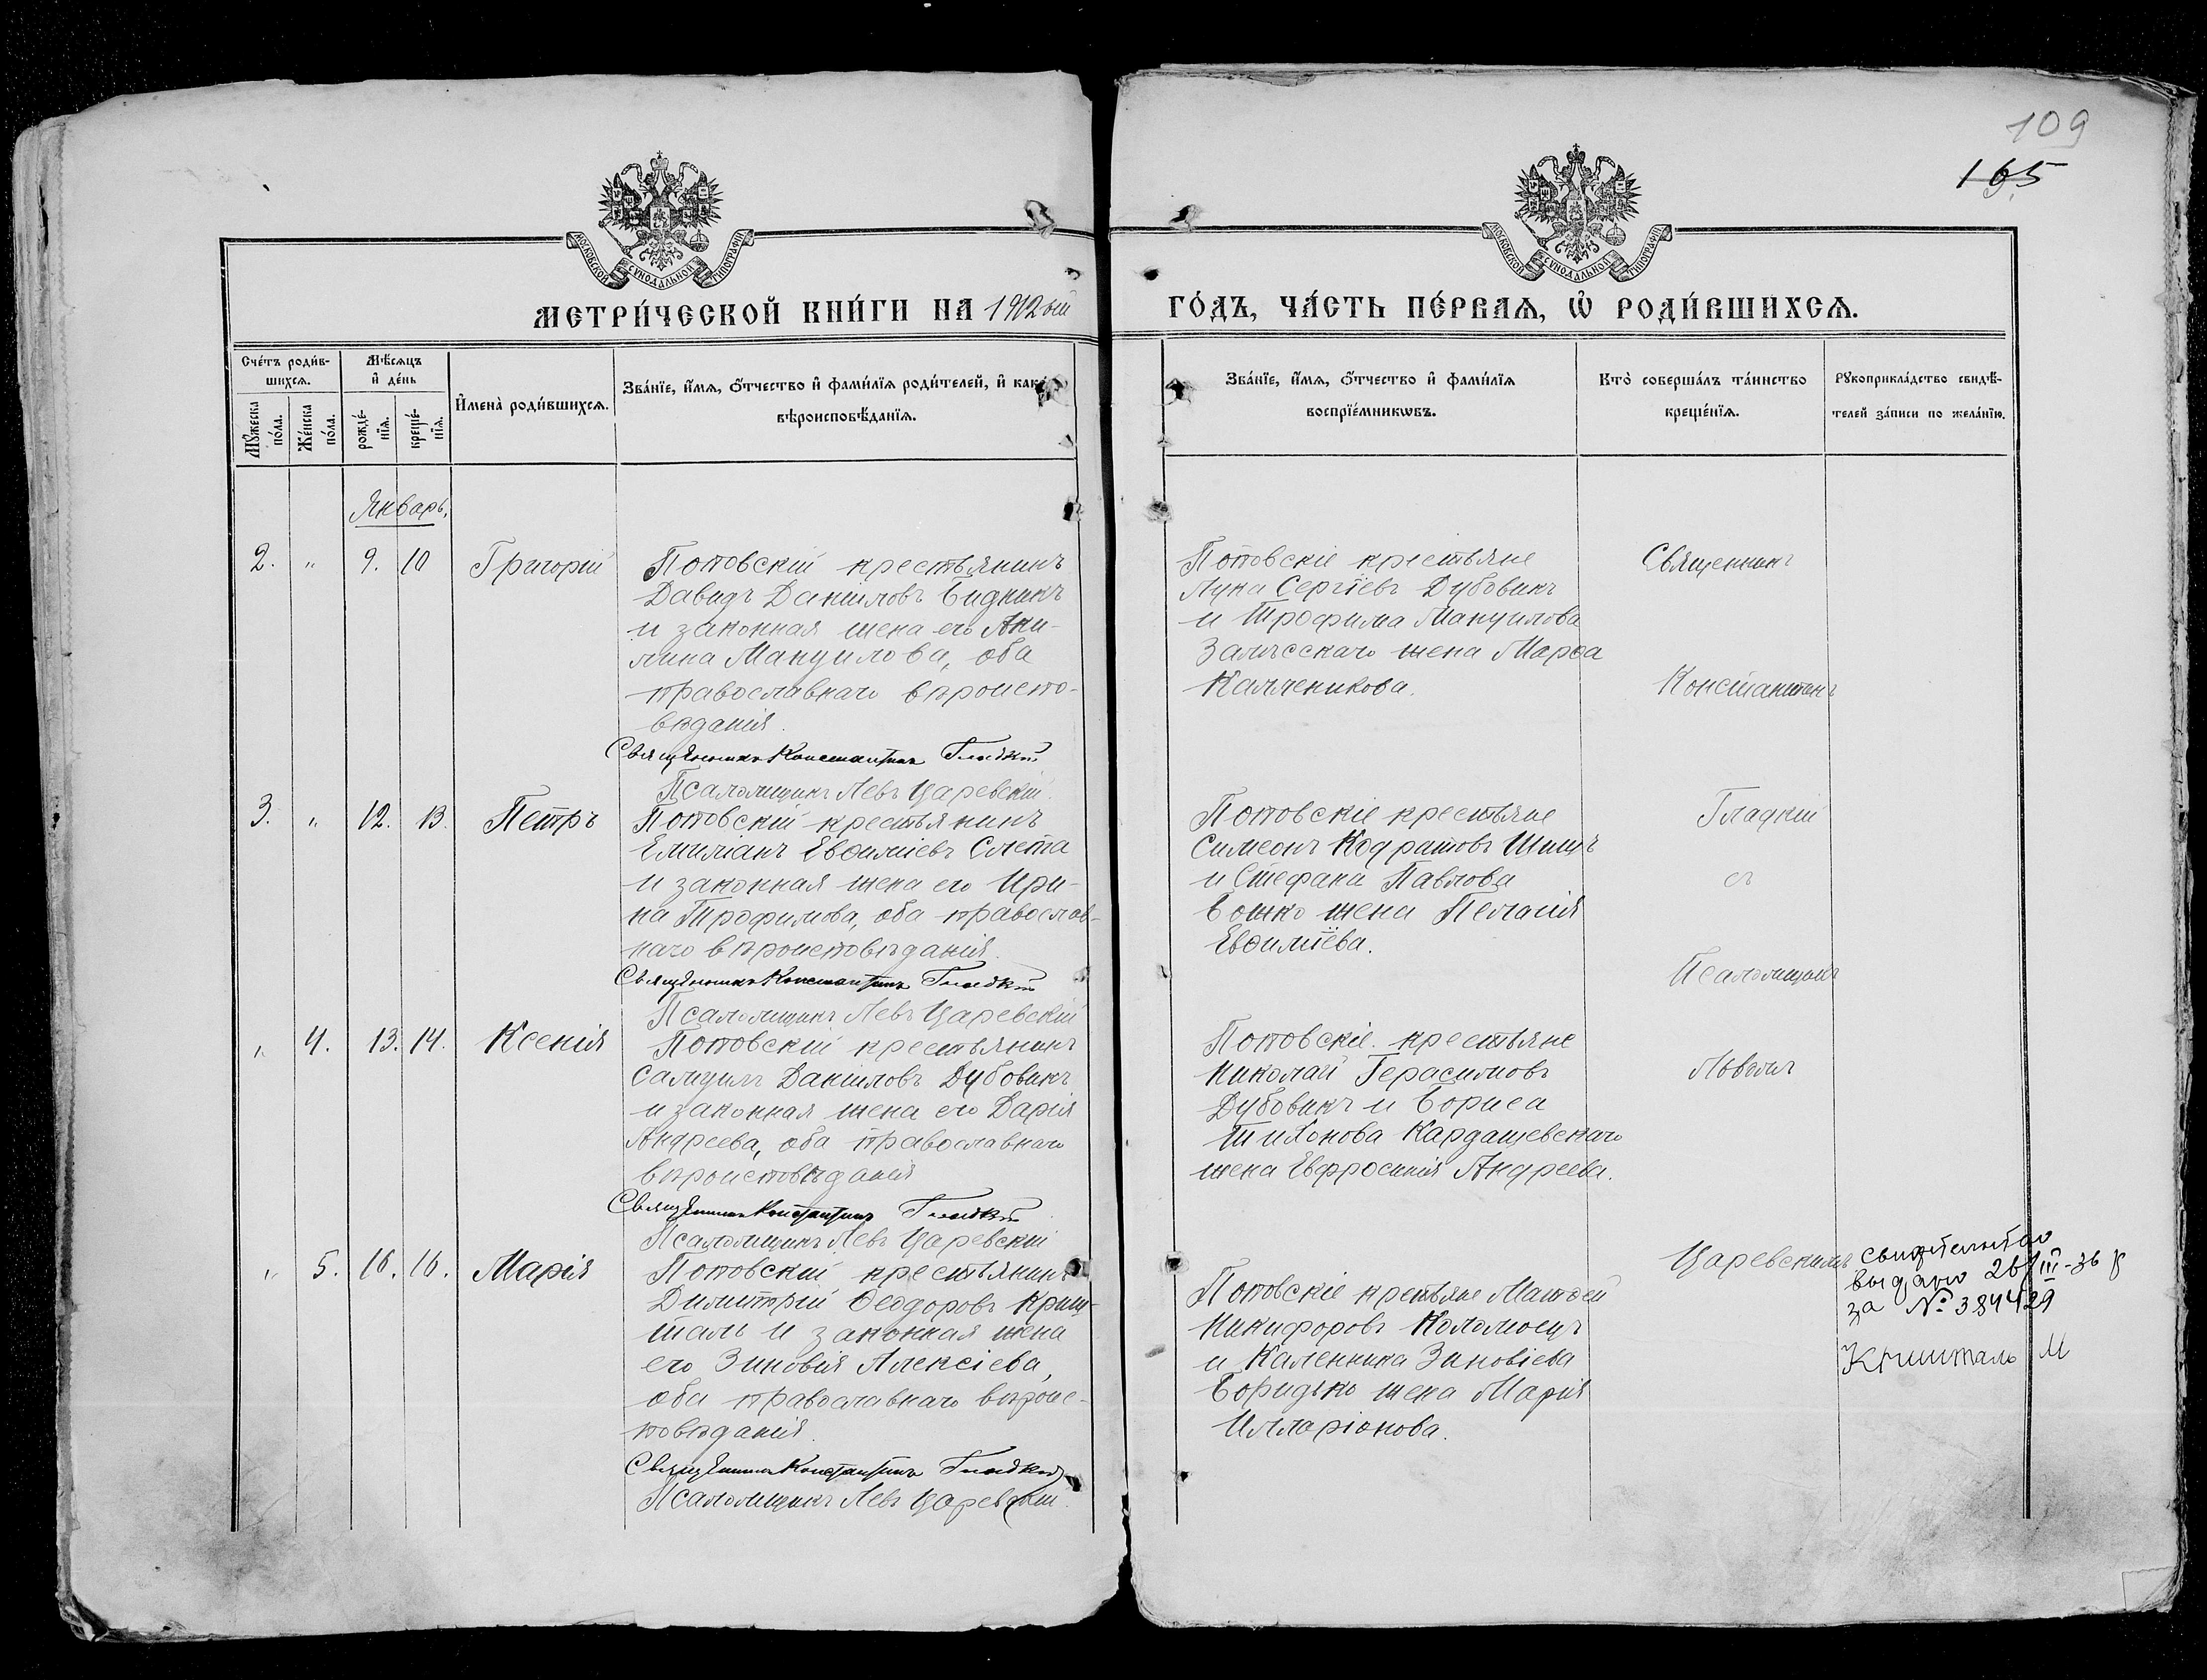 109
165
МОСКОВСКОЙ СУНОДАЛЬНОЙ ТИПОГРАФІИ
МОСКОВСКОЙ СУНОДАЛЬНОЙ ТИПОГРАФІИ
МЕТРИ́ЧЕСКОЙ КНИ́ГИ НА 1912ый
ГО́ДЪ, ЧА́СТЬ ПЕ́РВАЯ, Ѡ РОДИ́ВШИХСЯ.
Сче́тъ роди́в-
шихся.
Мѣ́сяцъ
и де́нь
Мꙋжеска по́ла.
Же́нска по́ла.
рожде́-
нїя.
креще́-
нїя.
Имена̀ роди́вшихся.
Зва́нїе, и́мя, о́тчество и фами́лїя роди́телей, и
вѣроисповѣ́данїя.
Зва́нїе, и́мя, о́тчество и фами́лїя
воспрїе́мникѡвъ.
Кто̀ соверша́лъ та́инство
креще́нїя.
Рꙋкоприкла́дство свидѣ́-
телей за́писи по жела́нїю.
Январь.
2. " 9. 10 Григорій
Поповскій крестьянинъ
Давидъ Даніиловъ Бидникъ
и законная жена его Аки-
лина Мануилова, оба
православнаго вѣроиспо-
вѣданія.
Священникъ Константинъ Гладкій
Псаломщикъ Левъ Царевскій.
Поповскіе крестьяне
Лука Сергіевъ Дубовикъ
и Трофима Мануилова
Залѣсскаго жена Марѳа
Каллиникова.
Священникъ
Константинъ
3. " 12. 13. Петръ
Поповскій крестьянинъ
Емиліанъ Евѳиміевъ Смета
и законная жена его Ири-
на Трофимова, оба православ-
наго вѣроисповѣданія.
Священникъ Константинъ Гладкій
Псаломщикъ Левъ Царевскій
Поповскіе крестьяне
Симеонъ Кодратовъ
и Стефана Павлова
Бошко жена Пелагія
Евѳиміева.
Гладкій
съ
Псаломщикомъ
" 4. 13. 14. Ксенія
Поповскій крестьянинъ
Самуилъ Даніиловъ Дубовикъ
и законная жена его Дарія
Андреева, оба православнаго
вѣроисповѣданія
Священникъ Константинъ Гладкій
Псаломщикъ Левъ Царевскій
Поповскіе крестьяне
Николай Герасимовъ
Дубовикъ и Бориса
Тихонова Кардашевскаго
жена Евфросинія Андреева.
Львомъ
" 5. 16. 16. Марія
Поповскій крестьянинъ
Димитрій Ѳеодоровъ Криш-
таль и законная жена
его Зиновія Алексіева,
оба православнаго вѣроис-
повѣданія.
Священникъ Константинъ Гладкій
Псаломщикъ Левъ Царевскій.
Поповскіе крестьяне Матѳей
Никифоровъ Коломоецъ
и Каленника Зиновіева
Боридько жена Марія
Илларіонова.
Царевскимъ
свидетельство
выдано 26/III-36 р
за № 384429
Кришталь М